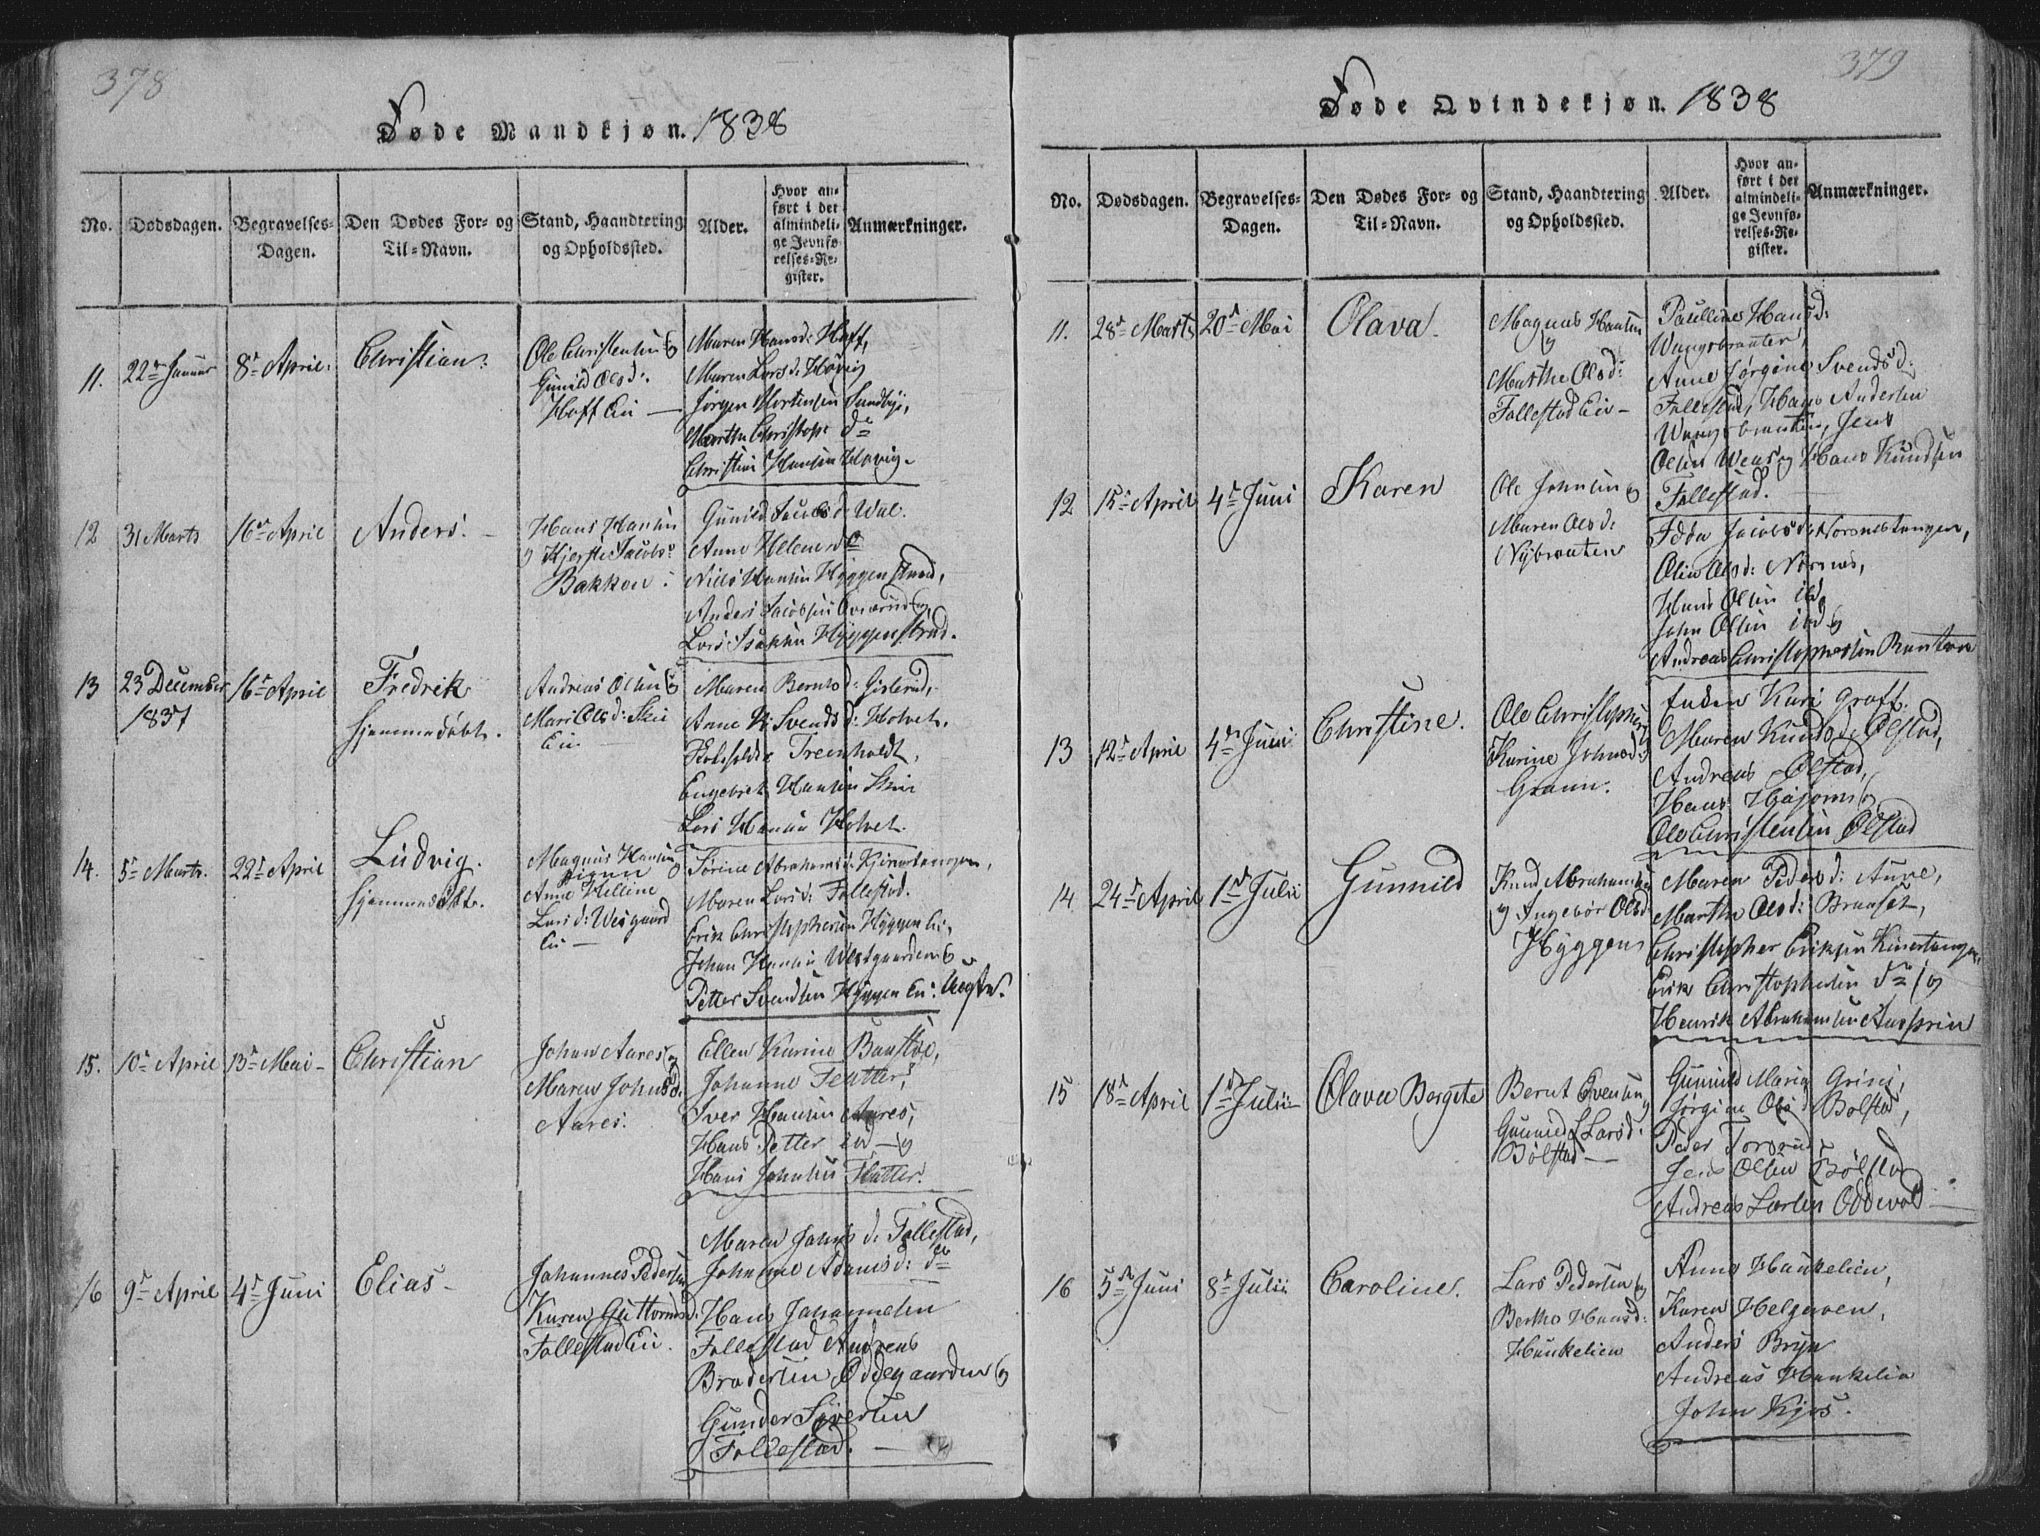 378
Døde Mandkjøn. 1838
No.
Dødsdagen.
Begravelses-
Dagen.
Den Dødes For- og
Til-Navn.
Stand, Haandtering
og Opholdssted.
Alder.
Hvor an-
ført i det
almindeli-
ge Jevnfø-
relses-Re-
gister.
Anmærkninger.
11.
22de Januar
8de April.
Christian.
Ole Christensen og
Gunild Olsd:
Hoff Ei —
Maren Hansd: Hoff,
Maren Larsd: Høvig
Jørgen Mortensen Sundbye,
Marthe Christoph: do
Christian Hansen Høvig.
12
31 Marts
16de April
Anders. —
Hans Hansen
og Kjersti Jacobs:
Bakken.
Gunild Jacobsd: Wal.
Anne Helene do
Nils Hansen Hyggenstrand,
Anders Jacobsen og
Lars Isaksen Hyggenstrand.
13
23 December
1837
16de April
Fredrik
hjemmedøbt.
Andreas Olsen og
Mari Olsd: Skii
Ei —
Maren Berntsd:
Anne K: Svendsd: Holvet.
Treenholdt,
Engebret Hansen Skii
Lars Hansen Holvet.
14.
5te Marts.
22de April
Ludvig.
hjemmedøbt.
Magnus Hansen
Anne Helline
Larsd: Wesgaard
Ei —
Sørine Abrahamsd: Kjinertangen,
Maren Larsd: Follestad.
Erik Christophersen Hyggen Ei,
Johan Hansen Westgaarden og
Petter Svendsen Hyggen Ei.
15.
10de April
13de Mai —
Christian
Johan Aares og
Maren Johnsd:
Aares.
Ellen Karine Baastøe,
Johanne
Iver Hansen Aares,
Hans Petter ibd — og
Hans Johnsen
16
9de April
4de Juni
Elias —
Johannes Pedersen
Karen Guttormsd:
Follestad Ei.
Maren Jahnsd: Follestad,
Johanne Adamsd: do
Hans Johannesen
Follestad Andreas
Brodersen Oddegaarden og
Gunder Siversen
Follestad. —
379
Døde Qvindekjøn. 1838
No.
Dødsdagen.
Begravelses-
Dagen.
Den Dødes For- og
Til-Navn.
Stand, Haandtering
og Opholdssted.
Alder.
Hvor an-
ført i det
almindeli-
ge Jevnfø-
relses-Re-
gister.
Anmærkninger.
11.
28de Marts
20de Mai
Olava.
Magnus Hansen
og
Marthe Olsd:
Follestad Ei —
Pauline Hansd:
Wangsbraaten,
Anne Jørgine Svendsd:
Follestad, Hans Andersen
Wangsbraaten, Jens
Olsen Weas og Hans Knudsen
Follestad.
12
15de April
4de Juni
Karen
Ole Johnsen og
Maren Olsd:
Nybraaten
Jacobsd: Norsnestangen,
Olia Olsd: Norsnes,
Hans Olsen ibd
John Olsen ibd og
Andreas Christophersen Braaten
13
12te April
4de Juni
Christine.
Ole Christophers: og
Karine Johnsd:
Graun.
Enken Kari Graff.
Maren Knudsd: Ølstad,
Andreas Ølstad,
Hans og
Ole Christensen Ølstad
14
24de April
1ste Julii
Gunnild
Knud Abrahamsen
og Ingebor Olsd:
Hyggen
Maren Pedersd: Aune,
Marthe Olsd: Braaset,
Christopher Eriksen Kinertangen,
Erik Christophersen do og
Henrik Abrahamsen
15
18de April
1ste Julii
Olava Bergete
Bernt Evensen og
Gunnild Larsd:
Bølstad —
Gunnild Maria Grini,
Jørgine Olsd: Bølstad,
Peder Torsrud
Jens Olsen Bølstad
Andreas Larsen Oddevold —
16
5te Juni
8de Julii
Caroline.
Lars Pedersen og
Berthe Hansd:
Haukelien
Anne Haukelien,
Karen Helgeroen,
Anders Bryn
Andreas Haukelia
John Kjos.